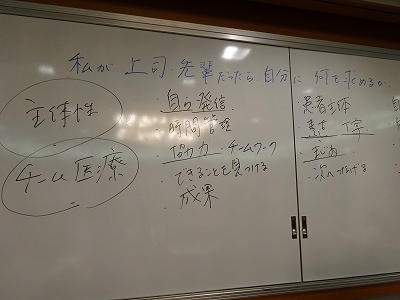 私が上司・先輩だったら自分に何を求めるか
主体性
チーム医療
・自ら発信
・時間管理
・協力力・チームワーク
・できることを見つける
・成果
患者主体
・次へつなげる